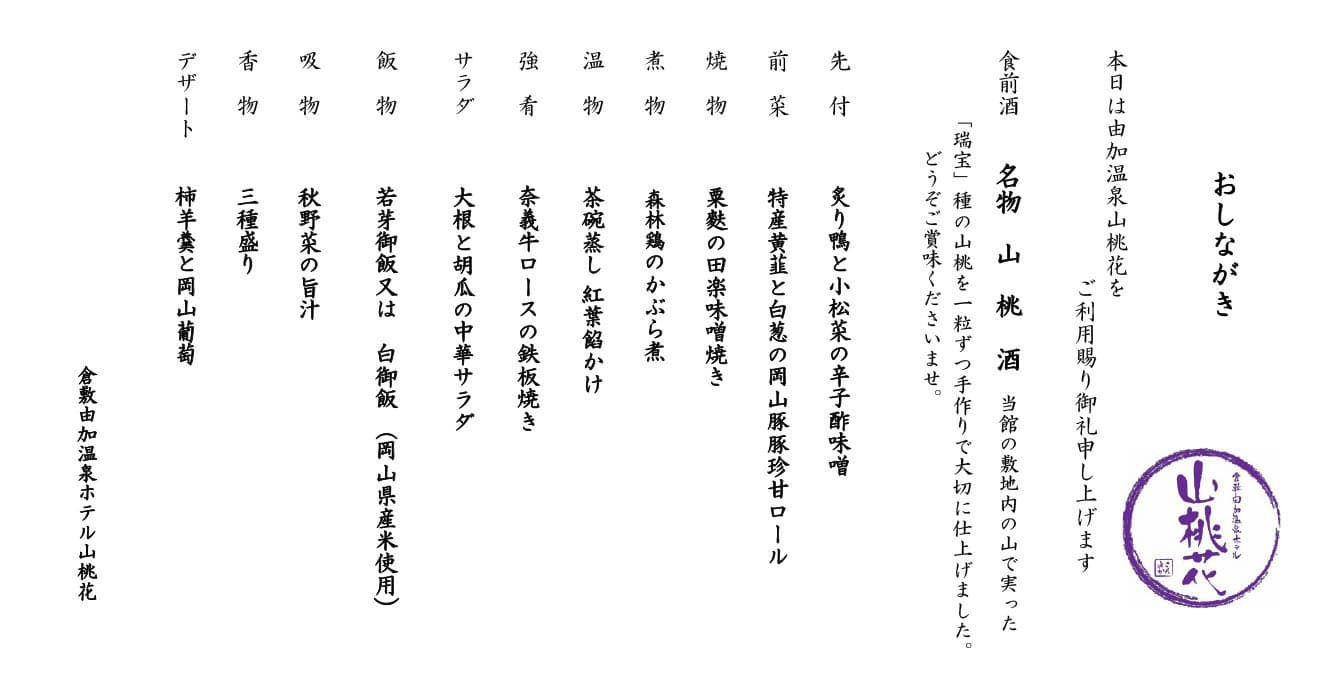 おしながき
倉敷由加温泉ホテル
山桃花
本日は由加温泉山桃花を
ご利用賜り御礼申し上げます
食前酒 名物 山桃酒 当館の敷地内の山で実った
「瑞宝」種の山桃を一粒ずつ手作りで大切に仕上げました。
どうぞご賞味くださいませ。
先付 炙り鴨と小松菜の辛子酢味噌
前菜 特産黄韮と白葱の岡山豚豚珍甘ロール
焼物 粟麩の田楽味噌焼き
煮物 森林鶏のかぶら煮
温物 茶碗蒸し 紅葉餡かけ
強肴 奈義牛ロースの鉄板焼き
サラダ 大根と胡瓜の中華サラダ
飯物 若芽御飯又は 白御飯 (岡山県産米使用)
吸物 秋野菜の旨汁
香物 三種盛り
デザート 柿羊羹と岡山葡萄
倉敷由加温泉ホテル山桃花